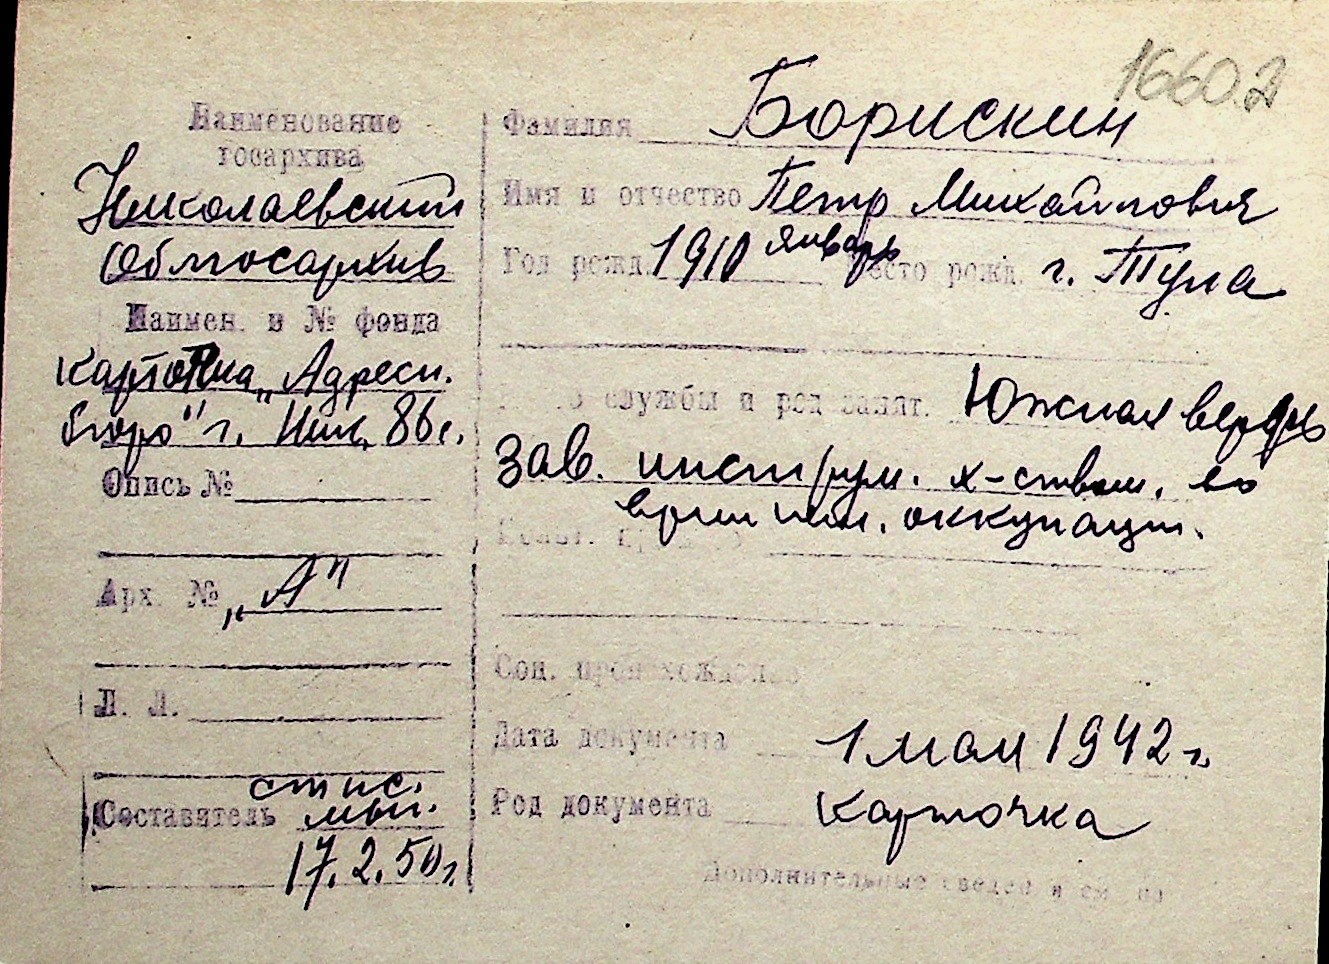 16602
Наименование
госархива
Николаевский
Облгосархив
Наимен. и № фонда
картотека „Адресн.
бюро" г. Ник. 86с.
Опись №
Арх. № „А"
Л. Л.
Составитель
17.2.50г.
Фамилия Борискин
Имя и отчество Петр Михайлович
Год рожд. 1910 январь Место рожд. г. Тула
службы и род занят. Южная верфь
Зав. инструм. х-ством, во
время нем. оккупации.
Соц. происхождение
Дата документа 1 мая 1942 г.
Род документа карточка
Дополнительные сведения см. на